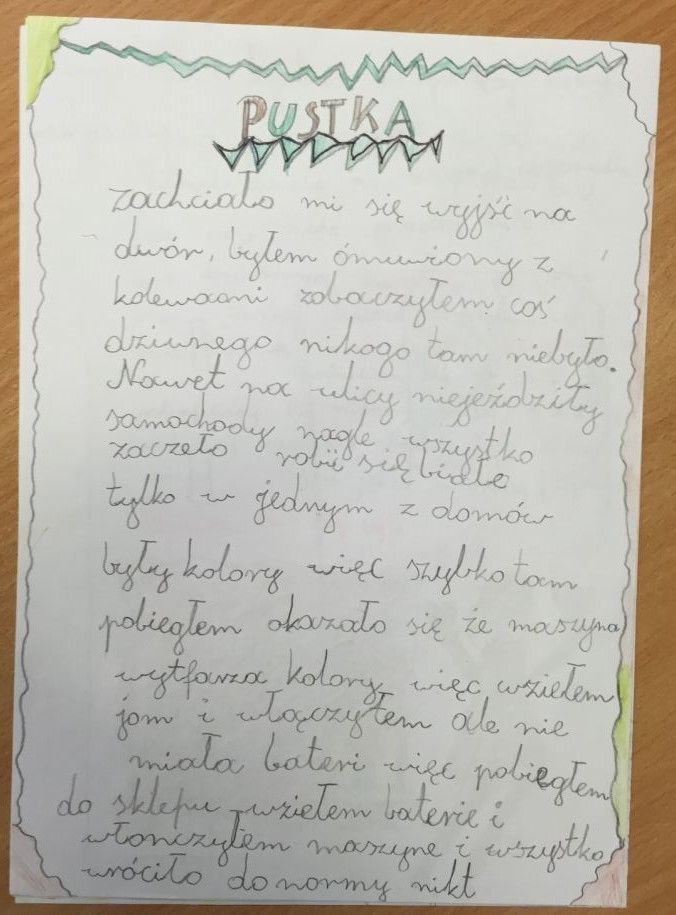 PUSTKA
zachciało mi się wyjść na
dwór, byłem ómuwiony z
kolewaani zobaczyłem coś
dziwnego nikogo tam niebyło.
Nawet na ulicy niejeździły
samochody nagle wszystko
zaczeło robić się białe
tylko w jednym z domów
były kolory więc szybko tam
pobiegłem okazało się że maszyna
wytfarza kolory więc wziełem
jom i włączyłem ale nie
miała bateri więc pobiegłem
do sklepu wziełem baterie i
włonczyłem maszyne i wszystko
wróciło do normy nikt